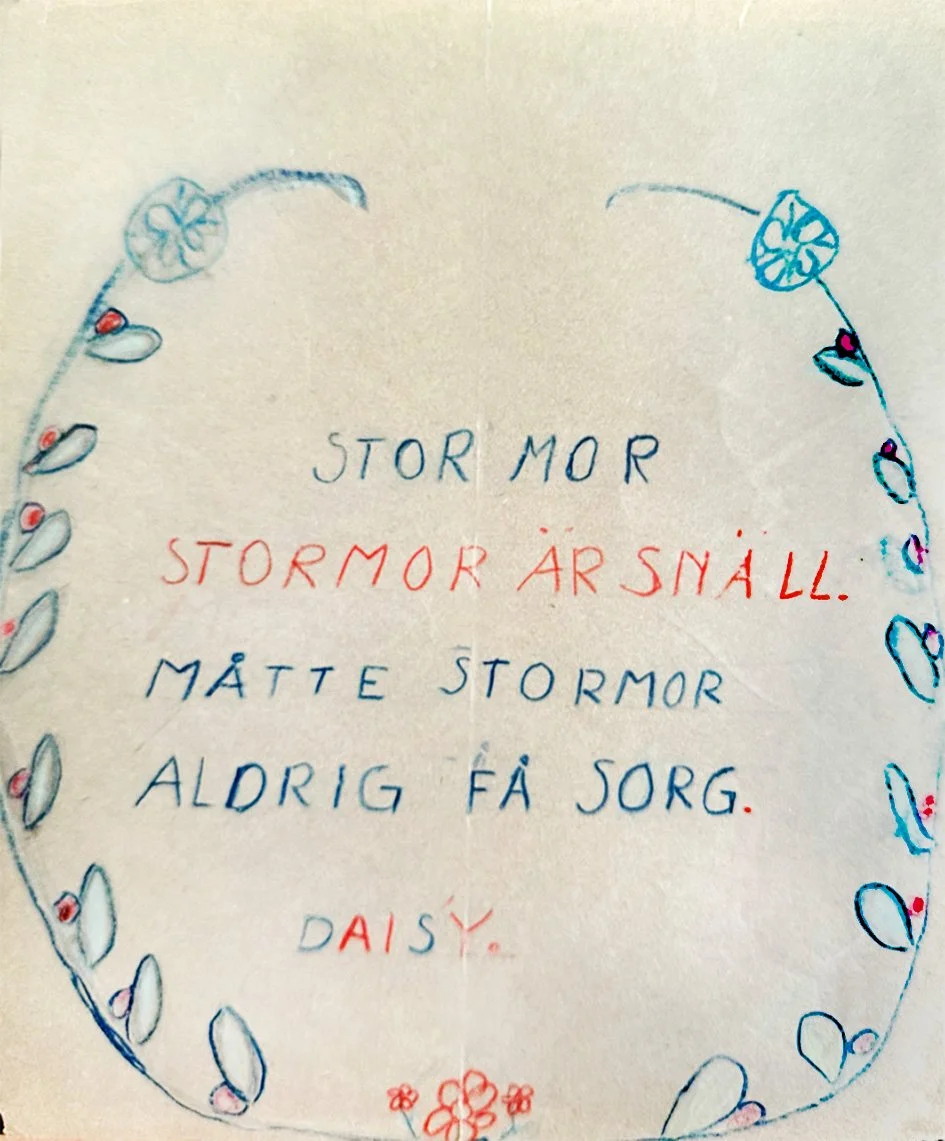 STOR MOR
STORMOR ÄR SNÄLL.
MÅTTE STORMOR
ALDRIG FÅ SORG.
DAISY.